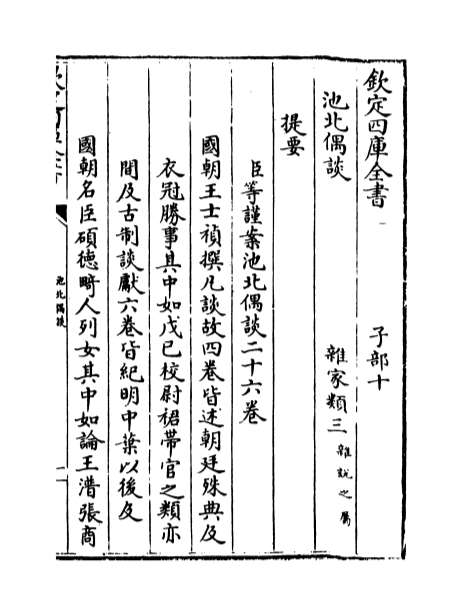 欽定四庫全書
子部十
池北偶談
雜家類三雜説之屬
提要
臣等謹案池北偶談二十六卷
國朝王士禎撰凡談故四卷皆述朝廷殊典及
衣冠勝事其中如戊己校尉裙帶官之類亦
間及古制談獻六卷皆紀明中葉以後及
國朝名臣碩德畸人列女其中如論王潽張商
池北偶談